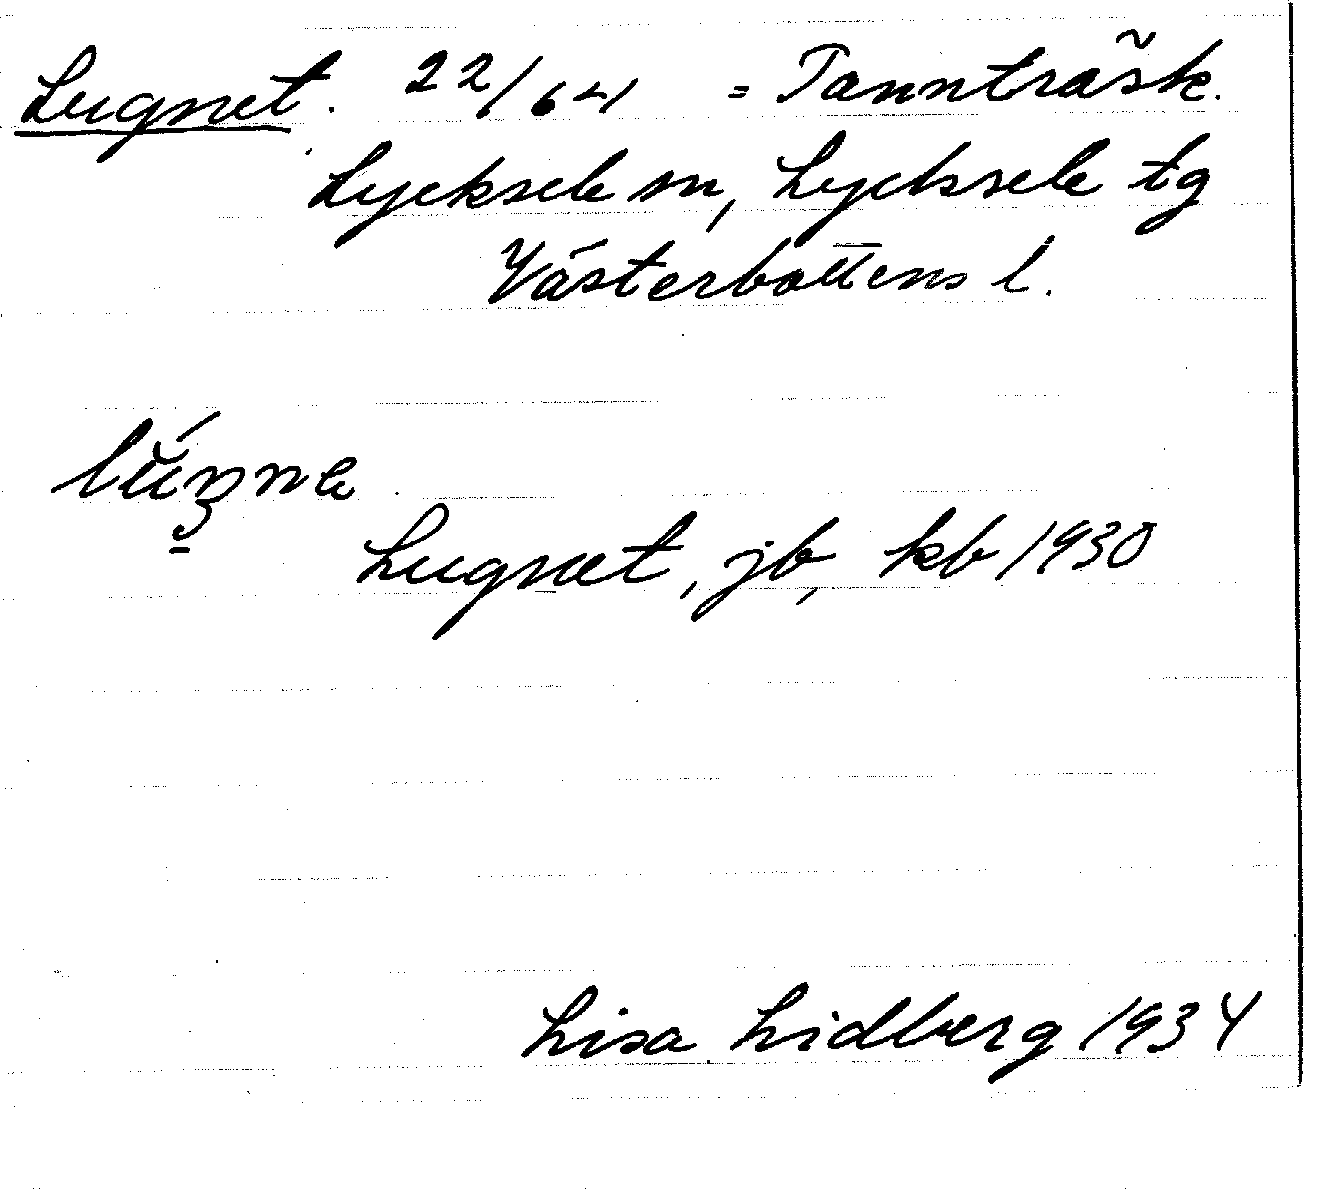 Lugnet. 22/64 = Tannträsk.
Lycksele sn, Lycksele tg
Västerbottens l.
Lugnet, jb, kb 1930
Lisa Lidberg 1934